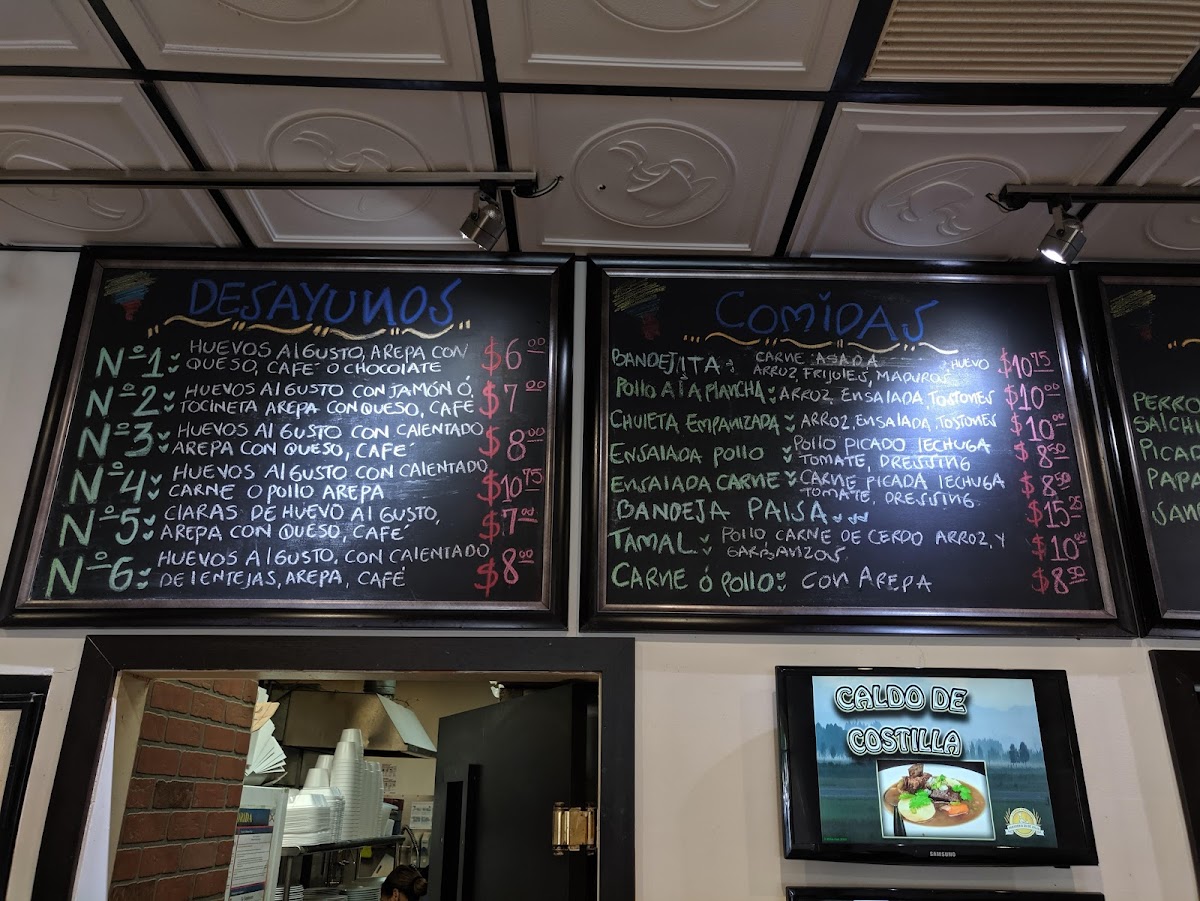 DESAYUNOS
Nº1: HUEVOS Al GUSTO, AREPA CON $6.00
QUESO, CAFE O CHOCOLATE
Nº2: HUEVOS Al GUSTO CON JAMÓN Ó, $7.00
TOCINETA AREPA CON QUESO, CAFÉ
Nº3: HUEVOS Al GUSTO CON CALENTADO $8.00
AREPA CON QUESO, CAFÉ
Nº4: HUEVOS Al GUSTO CON CALENTADO, $10.75
CARNE O POLLO AREPA
Nº5: CLARAS DE HUEVO Al GUSTO, $7.00
AREPA CON QUESO, CAFÉ
Nº6: HUEVOS Al GUSTO. CON CALENTADO $8.00
DE LENTEJAS, AREPA, CAFÉ
COMIDAS
BANDEJITA: CARNE ASADA, HUEVO $10.75
ARROZ FRIJOLES, MADUROS
POLLO A LA PLANCHA: ARROZ, ENSALADA, TOSTONES $10.00
CHULETA EMPANIZADA: ARROZ, ENSALADA, TOSTONES $10.00
ENSALADA POLLO: POLLO PICADO LECHUGA $8.50
TOMATE, DRESSING
ENSALADA CARNE: CARNE PICADA LECHUGA $8.50
TOMATE, DRESSING.
BANDEJA PAISA $15.25
TAMAL: POLLO, CARNE DE CERDO ARROZ, Y $10.00
GARBANZOS
CARNE Ó POLLO: CON AREPA $8.50
PERRO
SALCHI
PICAD
PAPA
SAN
CALDO DE
COSTILLA
SAMSUNG